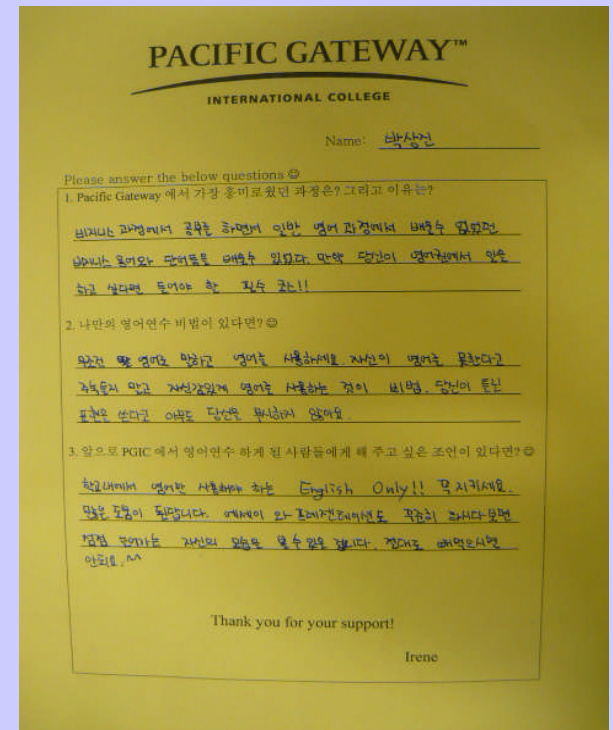 PACIFIC GATEWAY™
INTERNATIONAL COLLEGE
Name: 박상진
Please answer the below questions ☺
1. Pacific Gateway 에서 가장 흥미로웠던 과정은? 그리고 이유는?
비지니스 과정에서 공부를 하면서 일반 영어 과정에서 배울수 없었던
비지니스 용어와 단어들을 배울수 있었다. 만약 당신이 영어권에서 일을
하고 싶다면 들어야 할 필수 코스!!
2. 나만의 영어연수 비법이 있다면? ☺
무조건 영어로 말하고 영어를 사용하세요. 자신이 영어를 못한다고
주눅들지 말고 자신감있게 영어를 사용하는 것이 비법. 당신이 틀린
표현을 쓴다고 아무도 당신을 무시하지 않아요.
3. 앞으로 PGIC 에서 영어연수 하게 된 사람들에게 해 주고 싶은 조언이 있다면? ☺
학교내에서 영어만 사용해야 하는 English Only!! 꼭 지키세요.
많은 도움이 된답니다. 에세이 와 프레젠테이션도 꾸준히 하시다보면
점점 늘어가는 자신의 모습을 볼 수 있을 겁니다. 절대로 빼먹으시면
안되요. ^^
Thank you for your support!
Irene